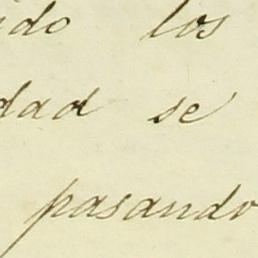 ido los
dad se
pasando